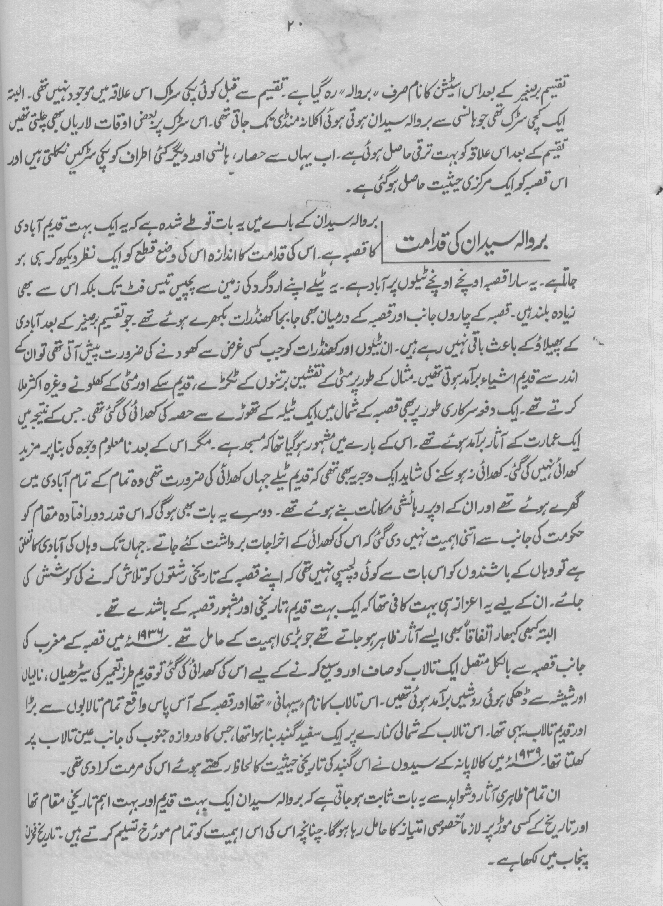 ۲۰
تقسیم برصغیر کے بعد اس اسٹیشن کا نام صرف "بروالہ" رہ گیا ہے۔ تقسیم سے قبل کوئی پکی سڑک اس علاقہ میں موجود نہیں تھی۔ البتہ
ایک کچی سڑک تھی جو ہانسی سے بروالہ سیدان ہوتی ہوئی اکلانہ منڈی تک جاتی تھی۔ اس سڑک پر بعض اوقات لاریاں بھی چلتی تھیں
تقسیم کے بعد اس علاقہ کو بہت ترقی حاصل ہوئی ہے۔ اب یہاں سے حصار، ہانسی اور دیگر کئی اطراف کو پکی سڑکیں نکلتی ہیں اور
اس قصبہ کو ایک مرکزی حیثیت حاصل ہو گئی ہے۔
بروالہ سیدان کی قدامت
بروالہ سیدان کے بارے میں یہ بات تو طے شدہ ہے کہ یہ ایک بہت قدیم آبادی
کا قصبہ ہے۔ اس کی قدامت کا اندازہ اس کی وضع قطع کو ایک نظر دیکھ کر ہی ہو
جاتا ہے۔ یہ سارا قصبہ اونچے اونچے ٹیلوں پر آباد ہے۔ یہ ٹیلے اپنے اردگرد کی زمین سے پچیس تیس فٹ تک بلکہ اس سے بھی
زیادہ بلند ہیں۔ قصبہ کے چاروں جانب اور قصبہ کے درمیان بھی جا بجا کھنڈرات بکھرے ہوئے تھے۔ جو تقسیم برصغیر کے بعد آبادی
کے پھیلاؤ کے باعث باقی نہیں رہے ہیں۔ ان ٹیلوں اور کھنڈرات کو جب کسی غرض سے کھودنے کی ضرورت پیش آتی تھی تو ان کے
اندر سے قدیم اشیاء برآمد ہوتی تھیں۔ مثال کے طور پر مٹی کے نقشین برتنوں کے ٹکڑے، قدیم سکے اور مٹی کے کھلونے وغیرہ اکثر ملا
کرتے تھے۔ ایک دفعہ سرکاری طور پر بھی قصبہ کے شمال میں ایک ٹیلہ کے تھوڑے سے حصہ کی کھدائی کی گئی تھی۔ جس کے نتیجہ میں
ایک عمارت کے آثار برآمد ہوئے تھے۔ اس کے بارے میں مشہور ہو گیا تھا کہ مسجد ہے۔ مگر اس کے بعد نامعلوم وجوہ کی بنا پر مزید
کھدائی نہیں کی گئی۔ کھدائی نہ ہو سکنے کی شاید ایک وجہ یہ بھی تھی کہ قدیم ٹیلے جہاں کھدائی کی ضرورت تھی وہ تمام کے تمام آبادی میں
گھرے ہوئے تھے اور ان کے اوپر رہائشی مکانات بنے ہوئے تھے۔ دوسرے یہ بات بھی ہو گی کہ اس قدر دور افتادہ مقام کو
حکومت کی جانب سے اتنی اہمیت نہیں دی گئی کہ اس کی کھدائی کے اخراجات برداشت کئے جاتے۔ جہاں تک وہاں کی آبادی کا تعلق
ہے تو وہاں کے باشندوں کو اس بات سے کوئی دلچسپی نہیں تھی کہ اپنے قصبہ کے تاریخی رشتوں کو تلاش کرنے کی کوشش کی
جائے۔ ان کے لیے یہ اعزاز ہی بہت کافی تھا کہ ایک بہت قدیم، تاریخی اور مشہور قصبہ کے باشندے تھے۔
البتہ کبھی کبھار اتفاقاً بھی ایسے آثار ظاہر ہو جاتے تھے جو بڑی اہمیت کے حامل تھے۔ ۱۹۳۶ء میں قصبہ کے مغرب کی
جانب قصبہ سے بالکل متصل ایک تالاب کو صاف اور وسیع کرنے کے لیے اس کی کھدائی کی گئی تو قدیم طرز تعمیر کی سیڑھیاں، نالیاں
اور شیشہ سے ڈھکی ہوئی روشیں برآمد ہوئی تھیں۔ اس تالاب کا نام "سیہانی" تھا اور قصبہ کے آس پاس واقع تمام تالابوں سے بڑا
اور قدیم تالاب یہی تھا۔ اس تالاب کے شمالی کنارے پر ایک سفید گنبد بنا ہوا تھا، جس کا دروازہ جنوب کی جانب عین تالاب پر
کھلتا تھا۔ ۱۹۳۹ء میں کالا پانہ کے سیدوں نے اس گنبد کی تاریخی حیثیت کا لحاظ رکھتے ہوئے اس کی مرمت کرا دی تھی۔
ان تمام ظاہری آثار و شواہد سے یہ بات ثابت ہو جاتی ہے کہ بروالہ سیدان ایک بہت قدیم اور بہت اہم تاریخی مقام تھا
اور تاریخ کے کسی موڑ پر لازماً خصوصی امتیاز کا حامل رہا ہو گا۔ چنانچہ اس کی اس اہمیت کو تمام مورخ تسلیم کرتے ہیں۔ تاریخ
پنجاب میں لکھا ہے۔